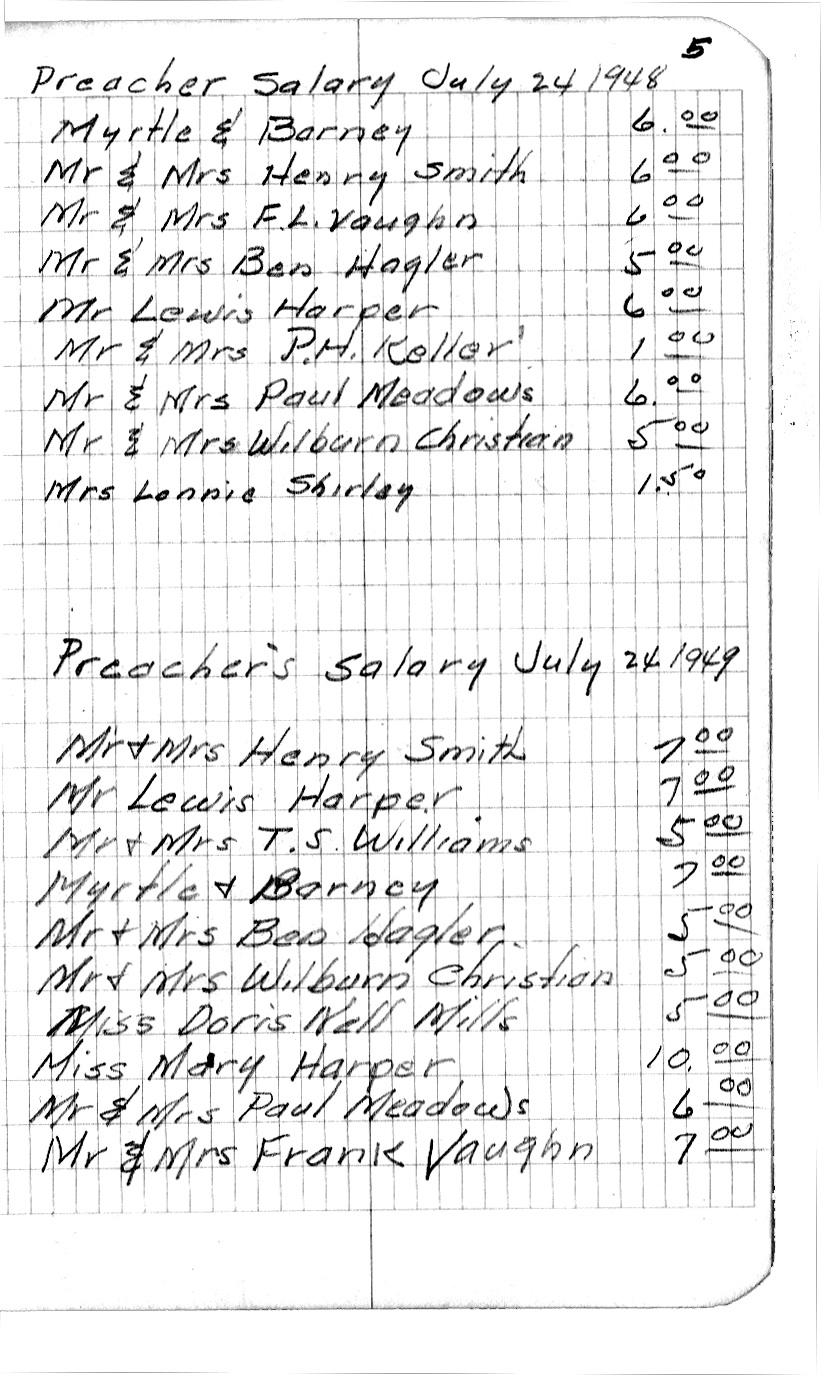 5
Preacher Salary July 24 1948
Myrtle & Barney 6.00
Mr & Mrs Henry Smith 6 00
Mr & Mrs F.L. Vaughn 6 00
Mr & Mrs Ben Hagler 5 00
Mr Lewis Harper 6 00
Mr & Mrs P.H. Keller 1 00
Mr & Mrs Paul Meadows 6.00
Mr & Mrs Wilburn Christian 5 00
Mrs Lonnie Shirley 1.50
Preacher's Salary July 24 1949
Mr + Mrs Henry Smith 7 00
Mr Lewis Harper 7 00
Mr + Mrs T.S. Williams 5 00
Myrtle & Barney 7 00
Mr + Mrs Ben Hagler 5 00
Mr & Mrs Wilburn Christian 5 00
Miss Doris Nell Mills 5 00
Miss Mary Harper 10.00
Mr & Mrs Paul Meadows 6 00
Mr & Mrs Frank Vaughn 7 00